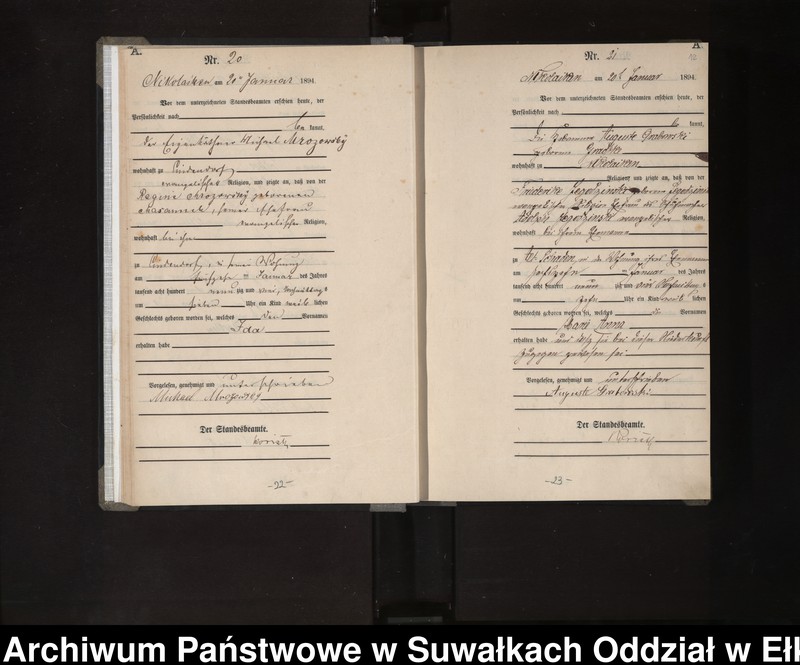 A.
Nr. 20
Nikolaiken am 20ⁿ Januar 1894.
Vor dem unterzeichneten Standesbeamten erschien heute, der
Persönlichkeit nach
be kannt,
der Eigenkäthner Michael Mrozowsky
wohnhaft zu Lindendorf
evangelischer Religion, und zeigte an, daß von der
Regine Mrozowsky geborenen
seiner Ehefrau
evangelischer Religion,
wohnhaft bei ihm
zu Lindendorf, in seiner Wohnung
am Januar des Jahres
tausend acht hundert neun zig und vier, Vormittags
um sieben Uhr ein Kind weib lichen
Geschlechts geboren worden sei, welches den Vornamen
Ida
erhalten habe
Vorgelesen, genehmigt und unterschrieben
Michael Mrozowsky
Der Standesbeamte.
-22-
A
Nr. 21
Nikolaiken am 20ⁿ Januar 1894.
Vor dem unterzeichneten Standesbeamten erschien heute, der
Persönlichkeit nach
be kannt,
die Hebamme Auguste Grabowski
geborene
wohnhaft zu Nikolaiken
Religion, und zeigte an, daß von der
Friederike geborene
evangelischer Religion Ehefrau des
evangelischer Religion,
wohnhaft bei ihrem Ehemanne
zu in der Wohnung ihres Ehemannes
am Januar des Jahres
tausend acht hundert neun zig und vier
um zehn Uhr ein Kind weib lichen
Geschlechts geboren worden sei, welches die Vornamen
Marie Anna
erhalten habe und daß sie bei dieser Niederkunft
zugegen gewesen sei.
Vorgelesen, genehmigt und unterschrieben
Auguste Grabowski
Der Standesbeamte.
-23-
Archiwum Państwowe w Suwałkach Oddział w Ełk